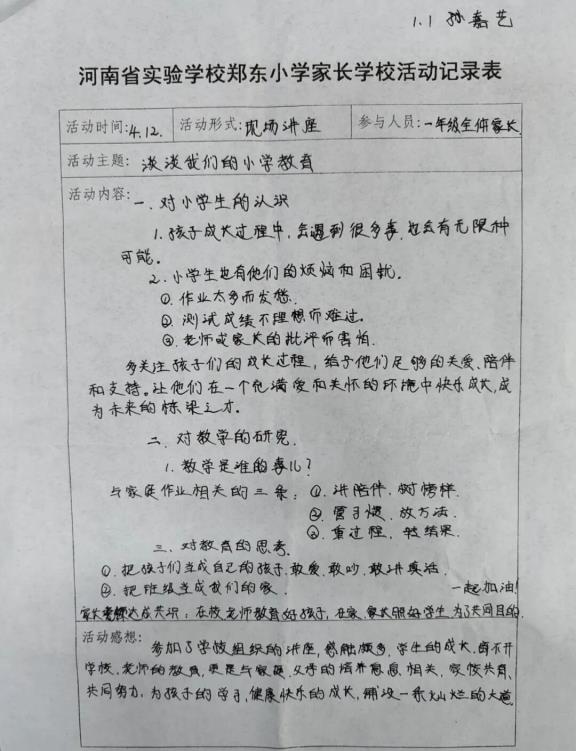 1.1 孙嘉艺
河南省实验学校郑东小学家长学校活动记录表
活动时间:4.12. 活动形式:现场讲座 参与人员:一年级全体家长.
活动主题: 谈谈我们的小学教育
活动内容: 一、对小学生的认识
1. 孩子成长过程中,会遇到很多事,也会有无限种
可能。
2. 小学生也有他们的烦恼和困扰.
①. 作业太多而发愁.
②. 测试成绩不理想而难过。
③. 老师或家长的批评而害怕.
多关注孩子们的成长过程,给予他们足够的关爱、陪伴
和支持。让他们在一个充满爱和关怀的环境中快乐成长,成
为未来的栋梁之才。
二、对教学的研究.
1. 教学是谁的事儿?
与家庭作业相关的三条: ①. 讲陪伴. 树榜样.
②. 管习惯. 放方法.
③. 重过程. 轻结果.
三、对教育的思考.
①. 把孩子们当成自己的孩子.敢爱.敢吵.敢讲真话.
②. 把班级当成我们的家. 一起加油!
家长老师达成共识:在校老师教育好孩子,在家、家长照好学生为了共同目的.
活动感想: 参加了学校组织的讲座,感触颇多,学生的成长,离不开
学校、老师的教育,更是与家庭、父母的培养息息相关,家校共育、
共同努力,为孩子的学习,健康快乐的成长,铺设一条灿烂的大道.